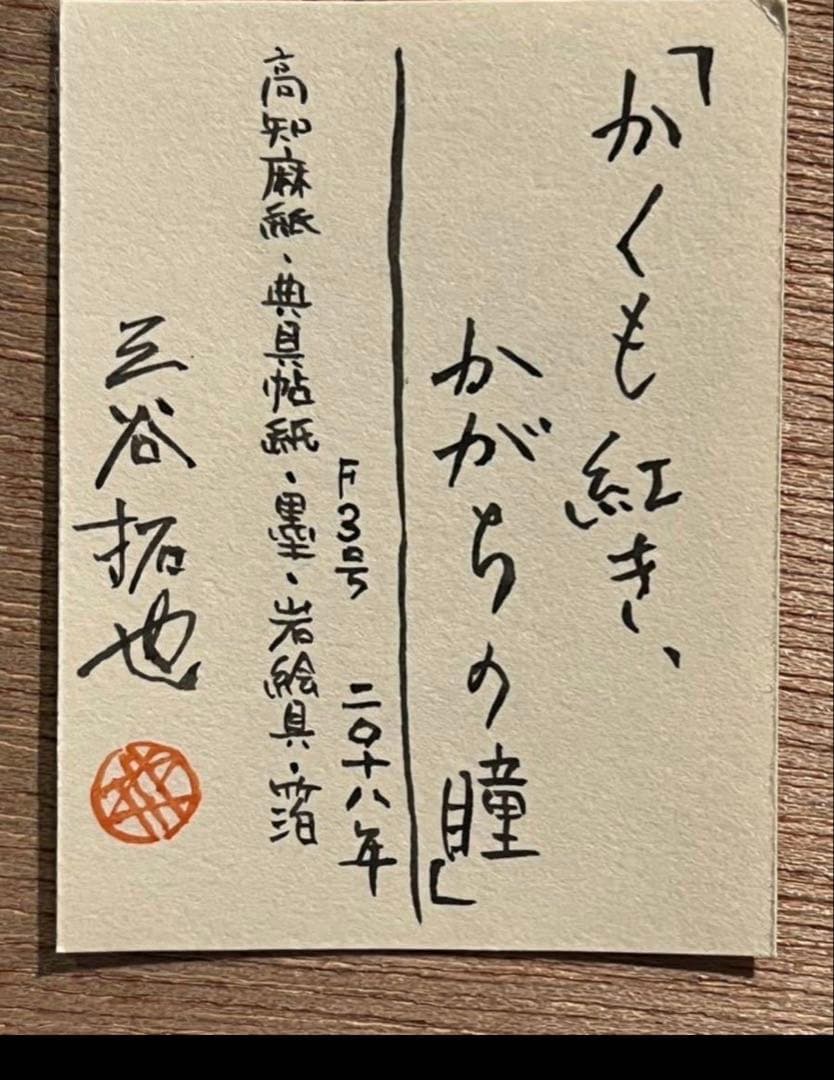 「かくも紅き、
かがちの瞳」
F3号 二〇十八年
高知麻紙・典具帖紙・墨・岩絵具・箔
三谷拓也